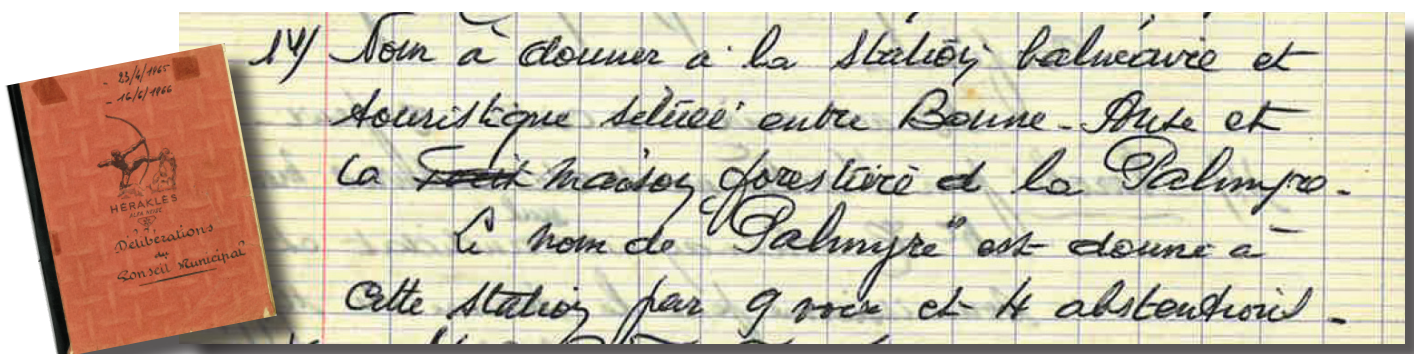 - 23/4/1965
- 16/6/1966
HERAKLES
Délibérations
du
Conseil Municipal
14) Nom à donner à la station balnéaire et
touristique située entre Bonne-Anse et
la maison forestière d la Palmyre.
Le nom de "Palmyre" est donné à
cette station par 9 voix et 4 abstentions.